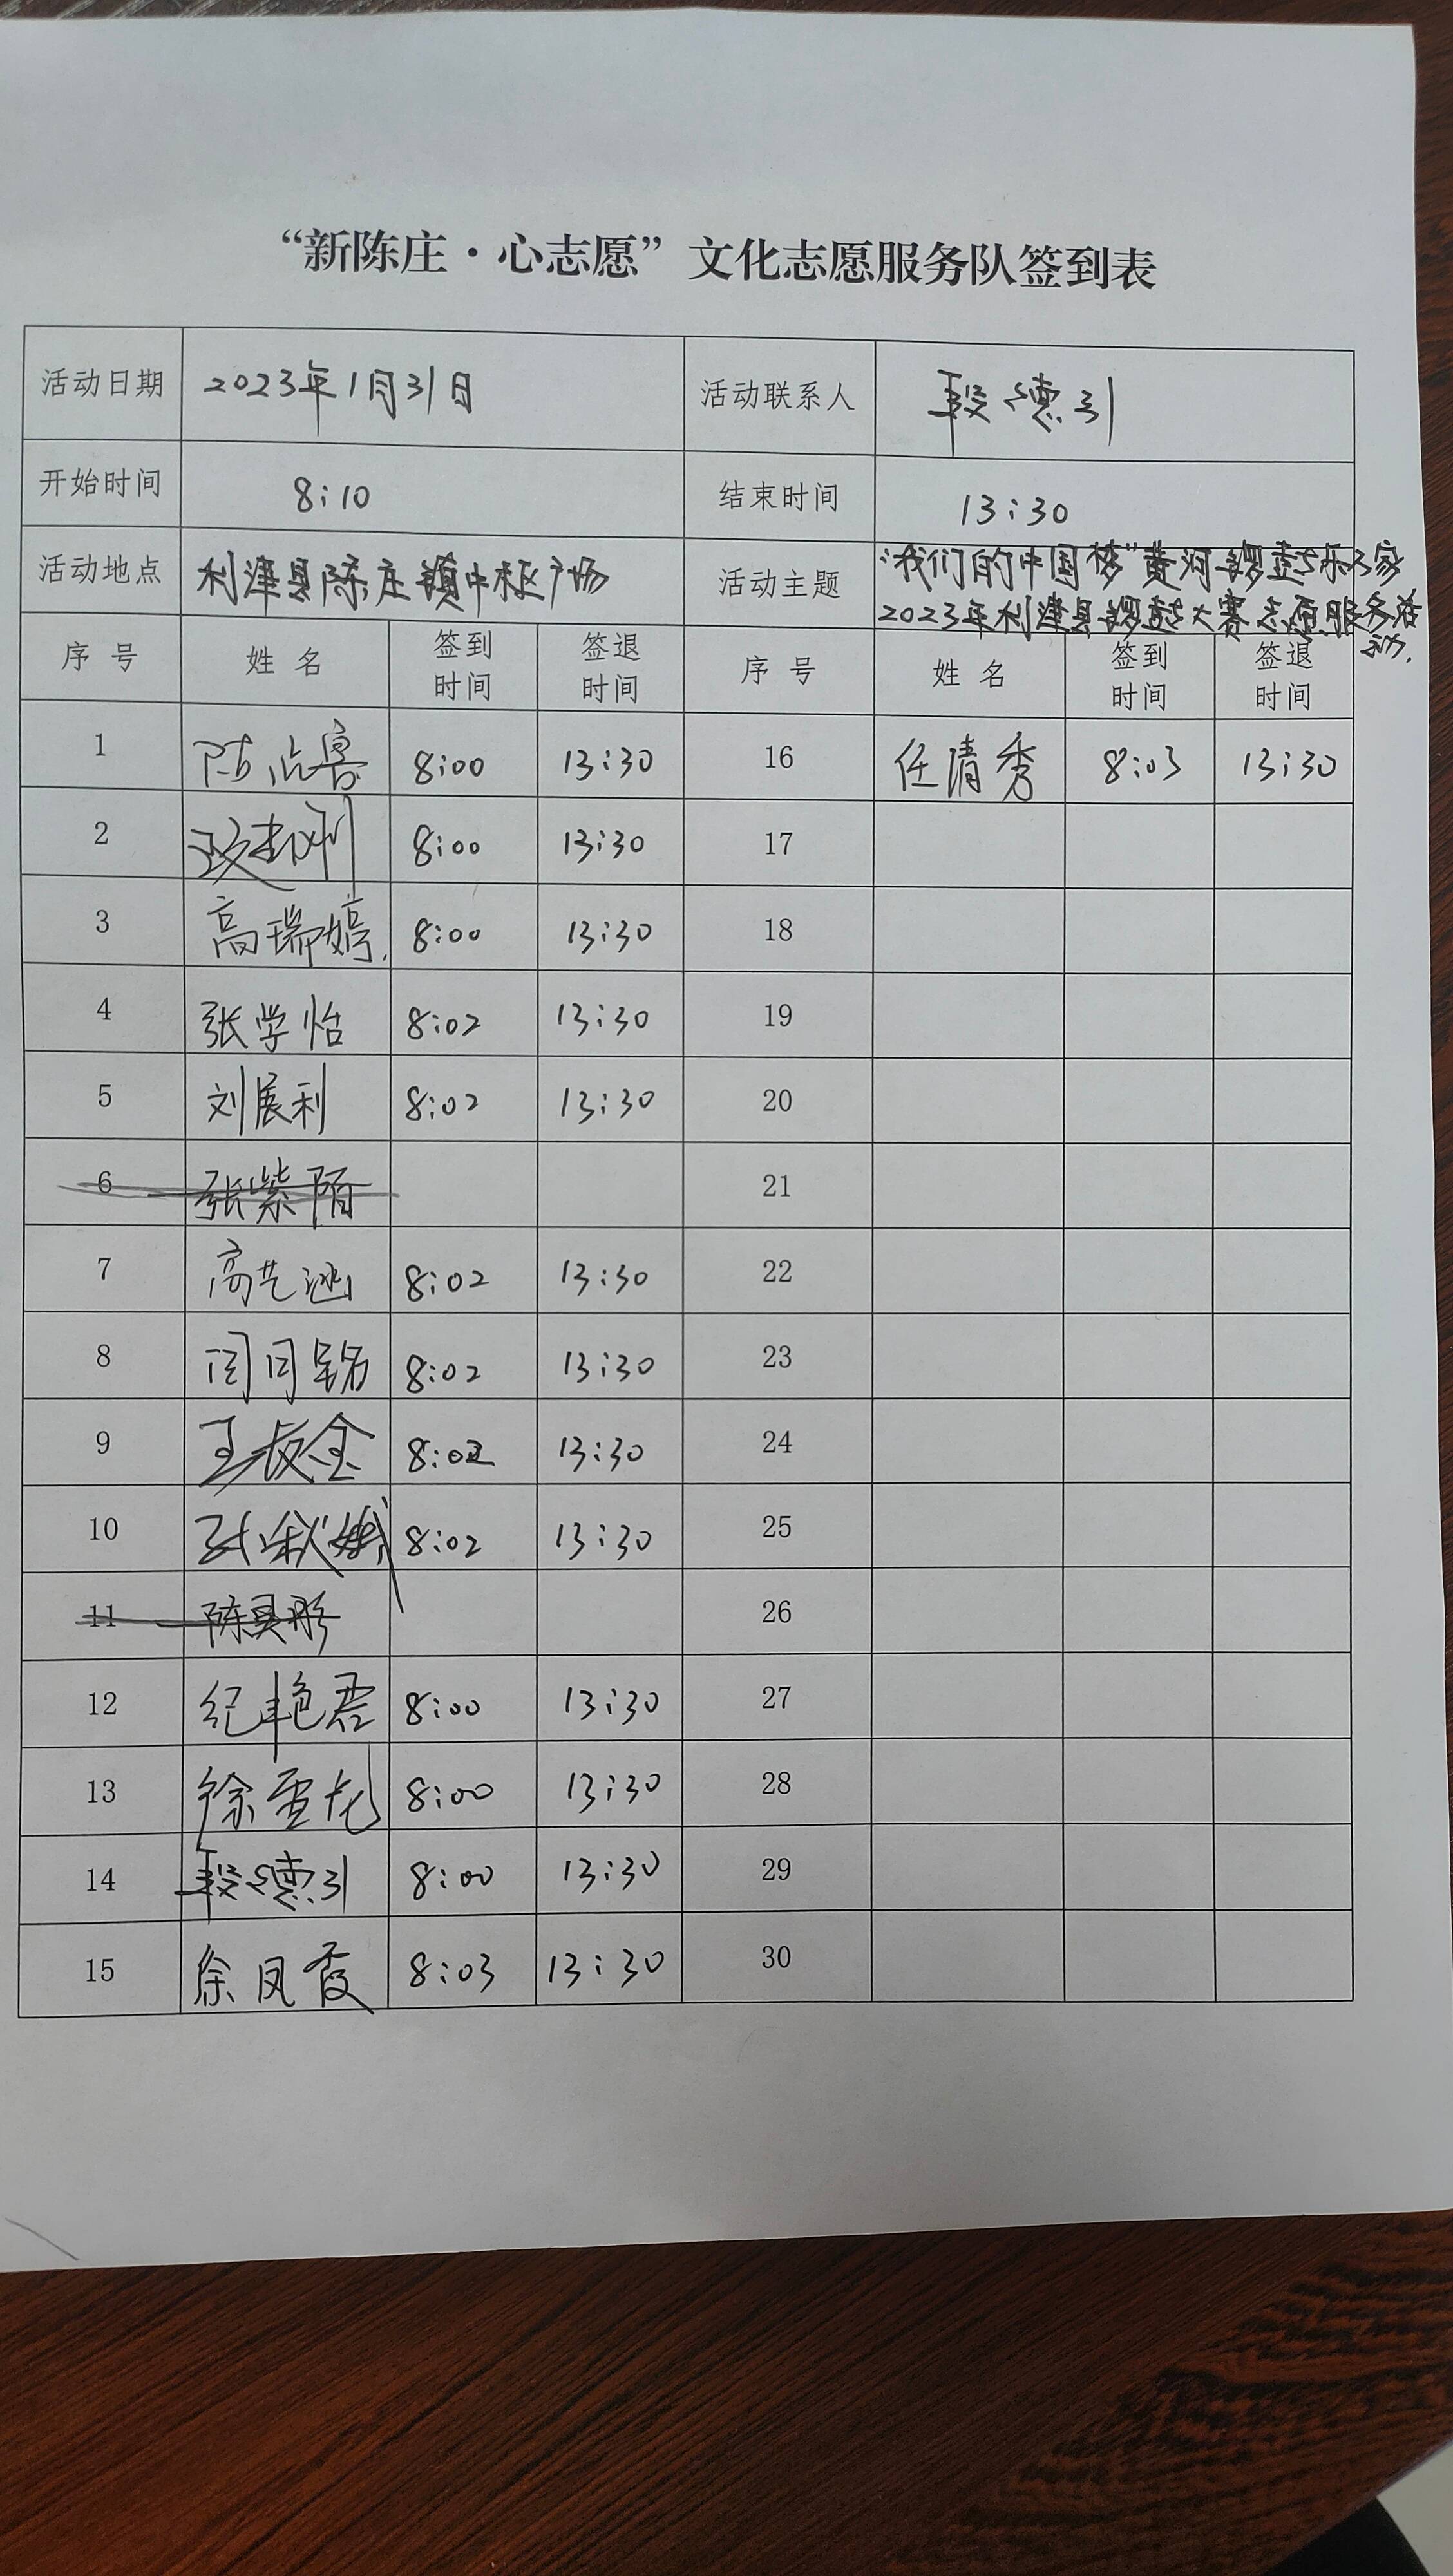 “新陈庄·心志愿”文化志愿服务队签到表
活动日期 2023年1月31日 活动联系人 段德引
开始时间 8:10 结束时间 13:30
活动地点 利津县陈庄镇中枢广场 活动主题 “我们的中国梦”黄河锣鼓乐万家
2023年利津县锣鼓大赛志愿服务活
动.
序号 姓名 签到时间 签退时间 序号 姓名 签到时间 签退时间
1 8:00 13:30 16 任清秀 8:03 13:30
2 8:00 13:30 17
3 高瑞婷. 8:00 13:30 18
4 张学怡 8:02 13:30 19
5 刘展利 8:02 13:30 20
6 张紫陌 21
7 高艺涵 8:02 13:30 22
8 8:02 13:30 23
9 8:02 13:30 24
10 8:02 13:30 25
11 陈昊彤 26
12 纪艳君 8:00 13:30 27
13 徐雪龙 8:00 13:30 28
14 段德引 8:00 13:30 29
15 徐凤霞 8:03 13:30 30